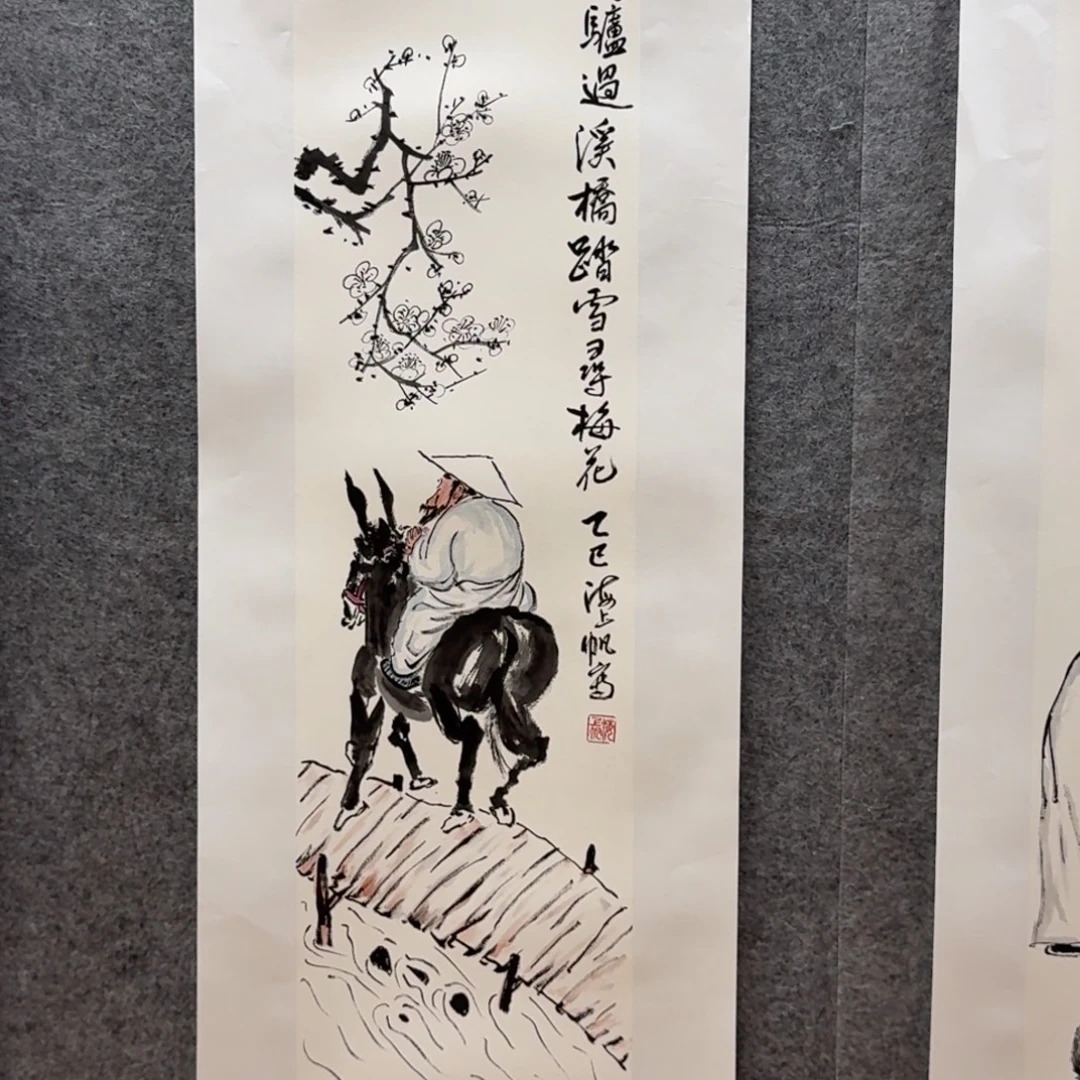 驢過溪橋踏雪尋梅花
乙巳海上帆寫